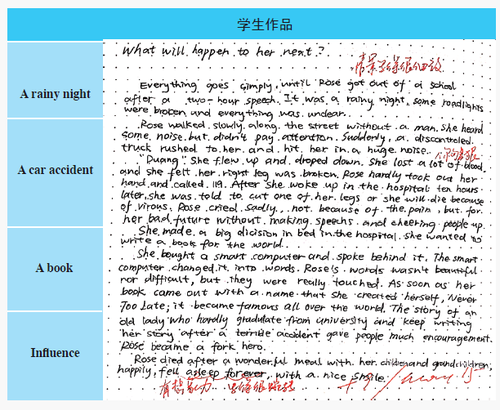 学生作品
What will happen to her next?
Everything goes simply, until Rose got out of a school
A rainy night
after a two-hour speech. It was a rainy night, some roadlights
were broken and everything was unclear.
Rose walked slowly along the street without a man, she heard
some noise but didn't pay attention. Suddenly, a discontroled
truck rushed to her and hit her in a huge noise.
"Duang" She flew up and droped down. She lost a lot of blood
A car accident
and she felt her right leg was broken. Rose hardly took out her
hand and called 119. After she woke up in the hospital ten hours
later, she was told to cut one of her legs or she will die because
of virous. Rose cried sadly, not because of the pain, but for
her bad future without making speechs and cheering people up.
She made a big dicision in bed in the hospital. She wanted to
write a book for the world.
A book
She bought a smart computer and spoke behind it. The smart
computer changed it into words. Rose's words wasn't beautiful
nor difficult, but they were really touched. As soon as her
book came out with a name that she created herself, Never
Too Late, it became famous all over the world. The story of an
old lady who hardly gradulate from university and keep writing
Influence
her story after a terrible accident gave people much encouragement.
Rose became a fork hero.
Rose died after a wonderful meal with her children and grandchildren
happily, fell asleep forever, with a nice smile.